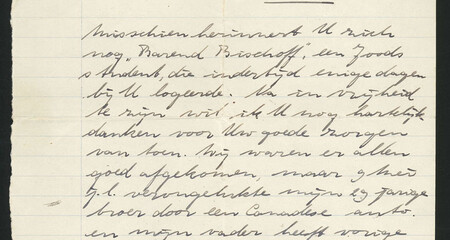 Misschien herinnert U zich
nog "Barend Bischoff", een Joods
student, die indertijd enige dagen
bij U logeerde. Na in vrijheid
te zijn wil ik U nog hartelijk
danken voor Uw goede zorgen
van toen. Wij waren er allen
goed afgekomen, maar 9 Mei
j.l. verongelukte mijn jarige
broer door een Canadese auto.
en mijn vader heeft vorige